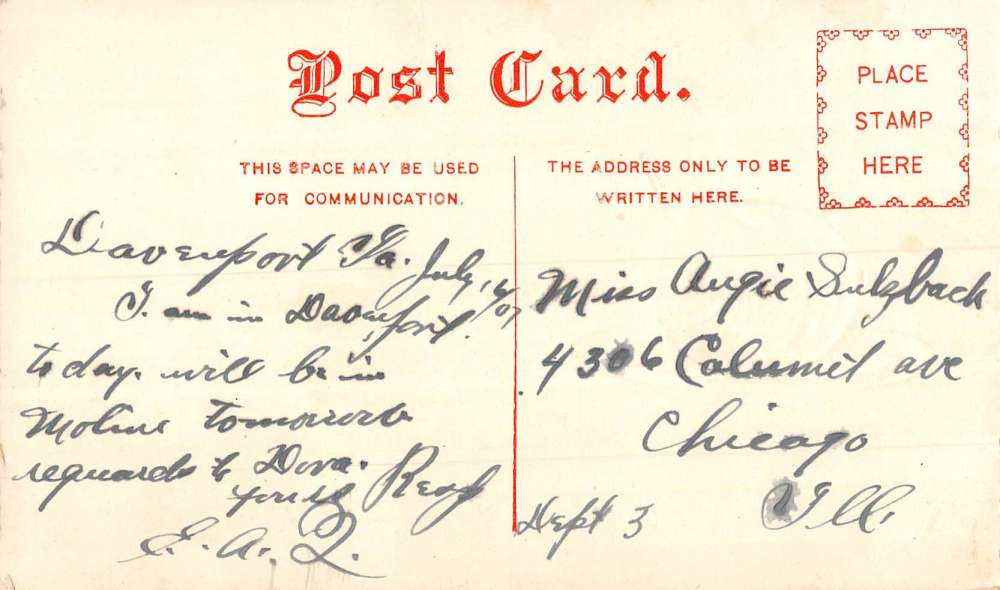 Post Card.
PLACE
STAMP
HERE
THIS SPACE MAY BE USED
FOR COMMUNICATION.
THE ADDRESS ONLY TO BE
WRITTEN HERE.
Davenport Ia. July, 16/07
I. am in Davenport.
to day. will be in
Moline tomorrow
reguards to Dora.
yours Resp
E. A. Q.
Miss Angie Sulzbach
4306 Calumet ave
Chicago
Ill.
Dept 3